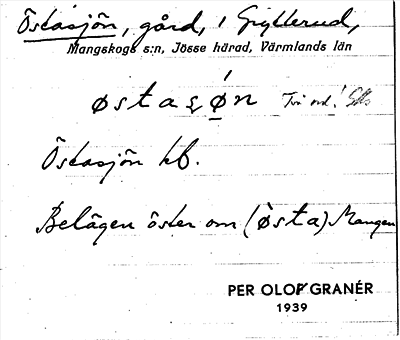 Östasjön, gård, i Gyllerud,
Mangskogs s:n, Jösse härad, Värmlands län
østaʂǿn Två ord!
Östasjön kb.
Belägen öster om (østa) Mangen
PER OLOF GRANÉR
1939